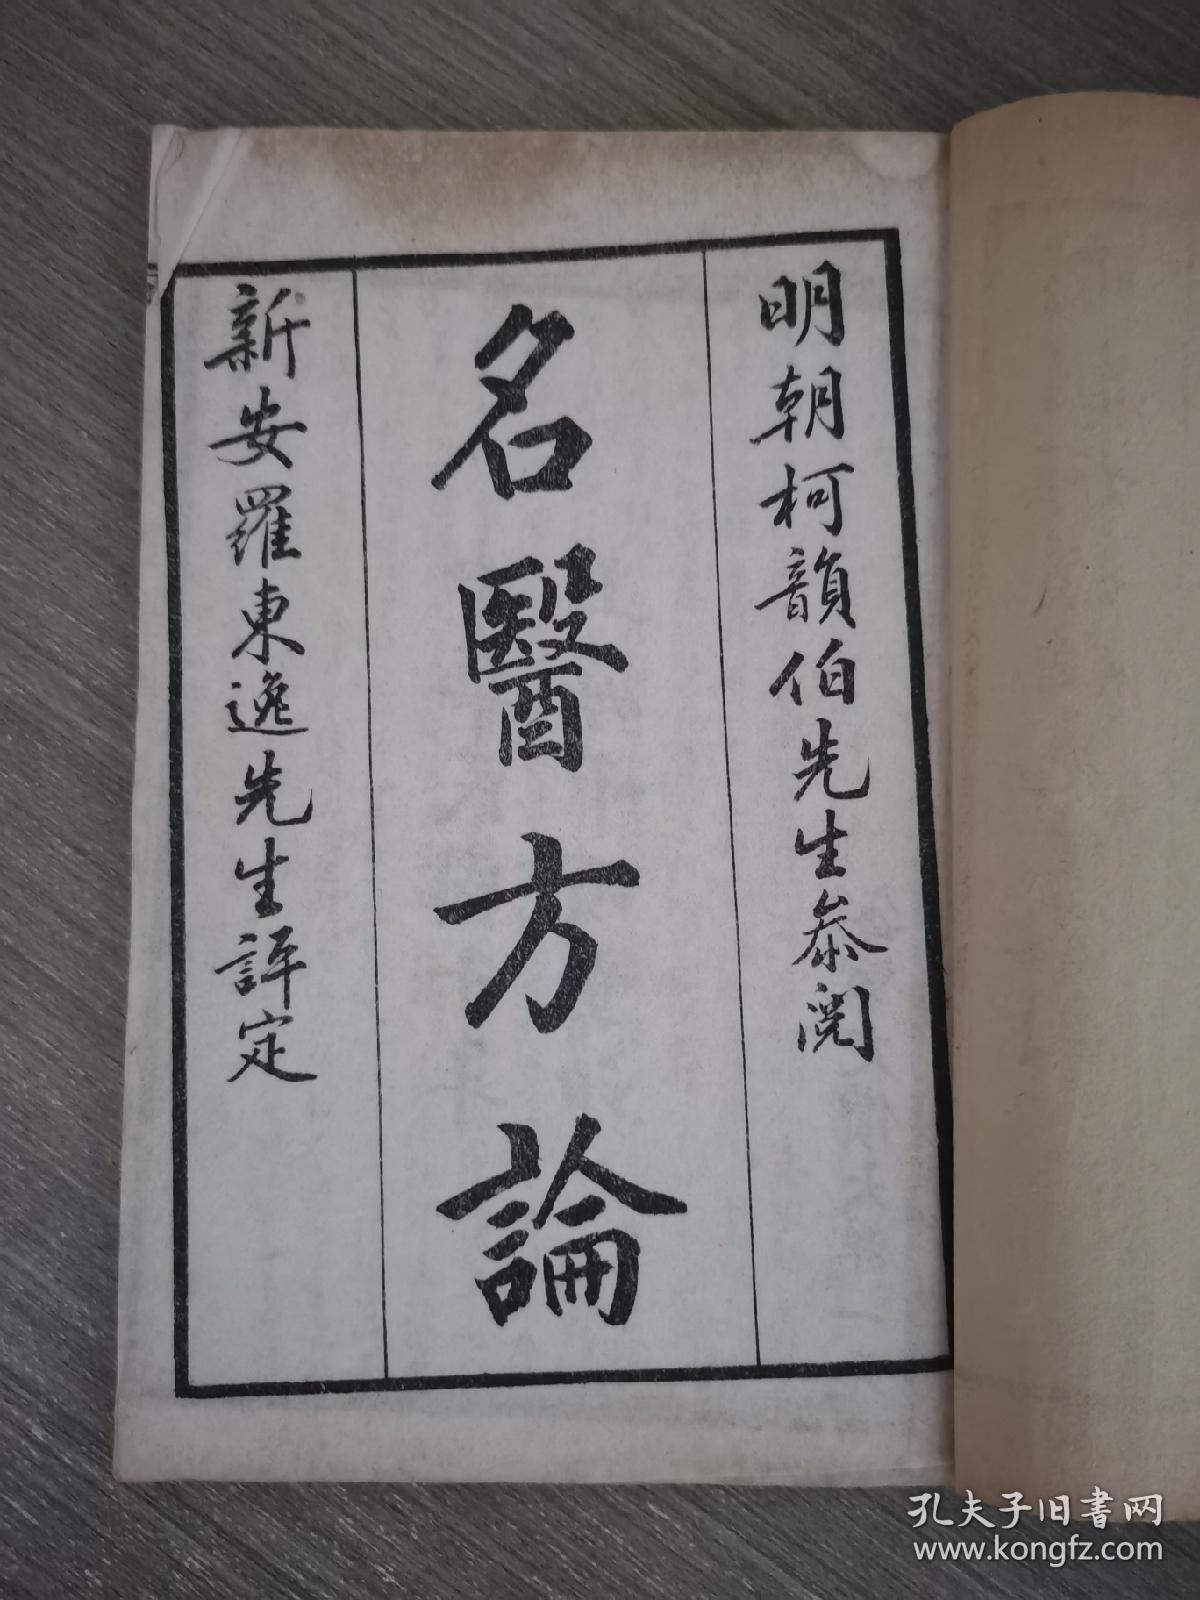 明朝柯韻伯先生叅閱
名醫方論
新安羅東逸先生評定
孔夫子旧書网
www.kongfz.com